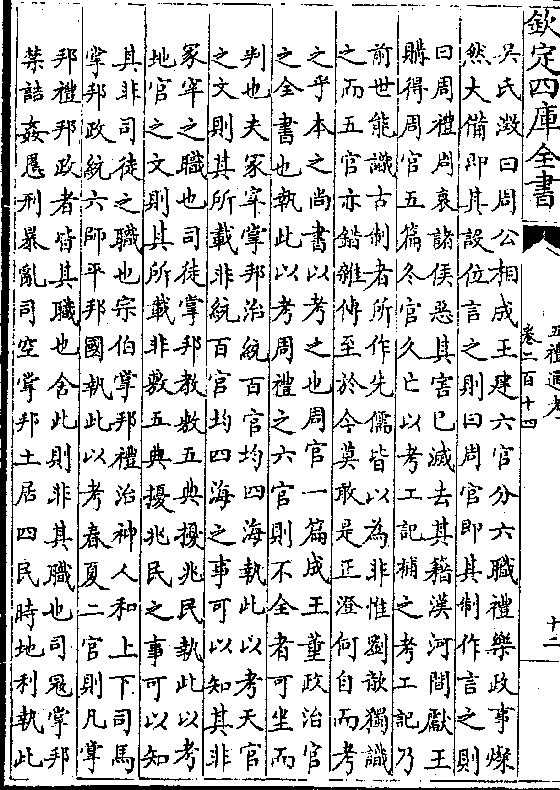 欽定四庫全書
五禮通考
卷二百十四
十二
吳氏澂曰周公相成王建六官分六職禮樂政事燦
然大備即其設位言之則曰周官即其制作言之則
曰周禮周衰諸侯惡其害已滅去其籍漢河間獻王
購得周官五篇冬官久亡以考工記補之考工記乃
前世能識古制者所作先儒皆以為非惟劉歆獨識
之而五官亦錯雜傳至於今莫敢是正澄何自而考
之乎本之尚書以考之也周官一篇成王董政治官
之全書也執此以考周禮之六官則不全者可坐而
判也夫冢宰掌邦治統百官均四海執此以考天官
之文則其所載非統百官均四海之事可以知其非
冢宰之職也司徒掌邦教敷五典擾兆民執此以考
地官之文則其所載非敷五典擾兆民之事可以知
其非司徒之職也宗伯掌邦禮治神人和上下司馬
掌邦政統六師平邦國執此以考春夏二官則凡掌
邦禮邦政者皆其職也舍此則非其職也司冦掌邦
禁詰姦慝刑暴亂司空掌邦土居四民時地利執此